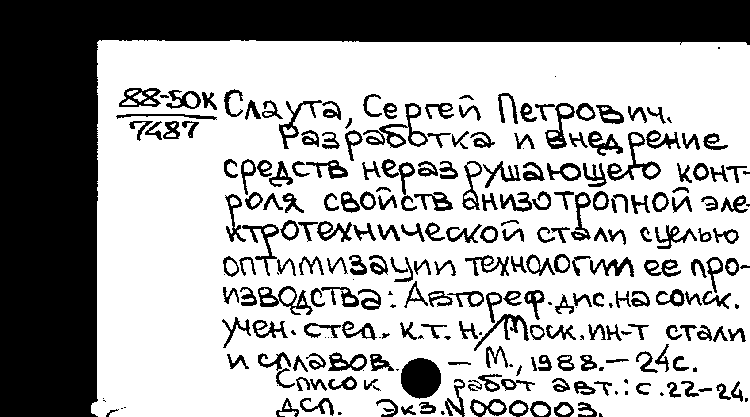 88-50К Слаута, Сергей Петрович.
7487
Разработка и внедрение
средств неразрушающего конт-
роля свойств анизотропной эле-
ктротехнической стали с целью
оптимизации технологии ее про-
изводства: Автореф. дис. на соиск.
учен. степ. к.т.н./Моск. ин-т стали
и сплавов. — М., 1988. — 24с.
Список работ авт.: с. 22-24.
ДСП. Экз. N 000003.